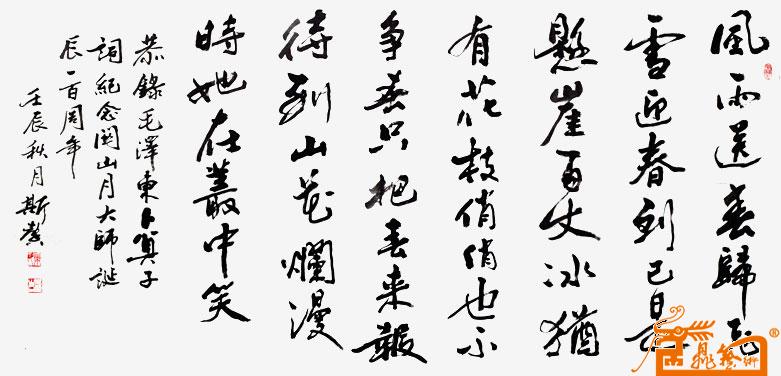 風雨送春歸飛
雪迎春到已是
懸崖百丈冰猶
有花枝俏俏也不
争春只把春來報
待到山花爛漫
時她在叢中笑
恭錄毛澤東卜算子
詞紀念關山月大師誕
辰一百周年
壬辰秋月斯